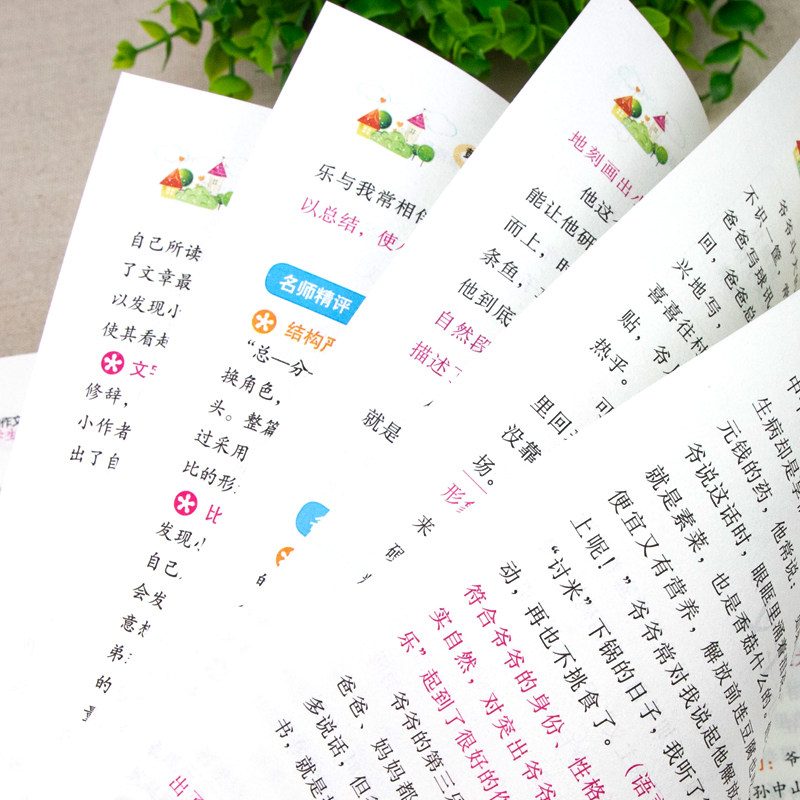 自己所读
了文章最
以发现小
使其看起
修辞，
小作者
出了自
作文
乐与我常相伴
以总结，使
名师精评
结构严
“总—分
换角色，
头。整篇
过采用
比的形
比
发现
自己
会发
意想
弟
的
地刻画出
他这
能让他研
而上，时
条鱼，
他到底
自然段
描述
就是
爷爷斗大
不识一筐，
爸爸写球讯
回，爸爸总
兴地写，
喜喜往村
贴，爷
热乎。可
里回
没靠
场。
形象
来
研
生病却是享
元钱的药，他常说：
爷说这话时，眼眶里涌着
就是素菜，也是香菇什么的。
便宜又有营养，解放前连豆腐
上呢！”爷爷常对我说起他解放
“讨米”下锅的日子，我听了
动，再也不挑食了。
符合爷爷的身份、性格
实自然，对突出爷爷
乐”起到了很好的作
爷爷的第三乐
爸爸、妈妈都
多说话，但
书，就是
出了
孙中山